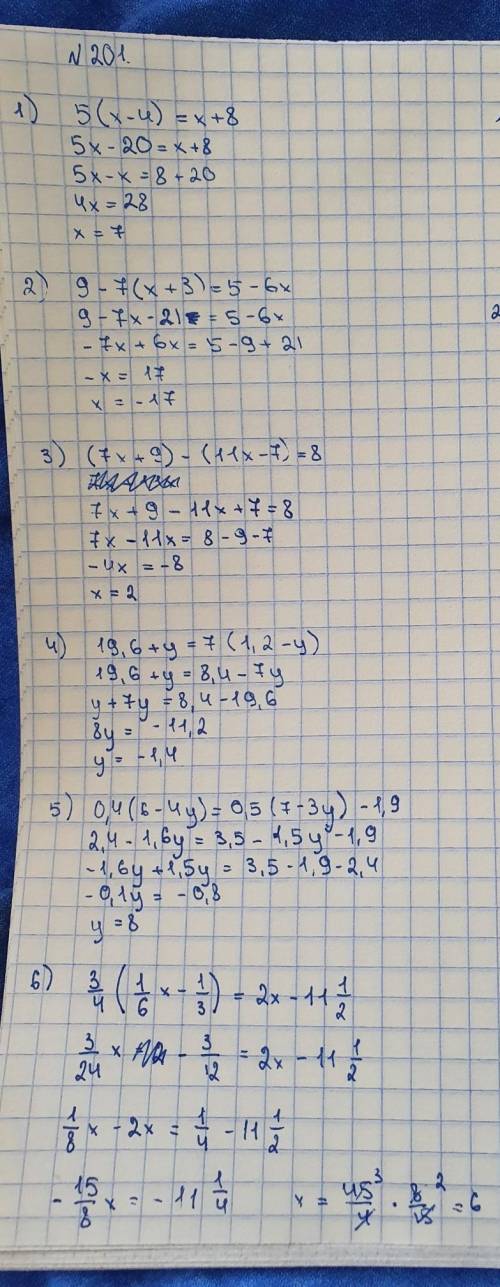 №201.
1) 5(x-4)=x+8
5x-20=x+8
5x-x=8+20
4x=28
x=7
2) 9-7(x+3)=5-6x
9-7x-21=5-6x
-7x+6x=5-9+21
-x=17
x=-17
3) (7x+9)-(11x-7)=8
7x+9-11x+7=8
7x-11x=8-9-7
-4x=-8
x=2
4) 19,6+y=7(1,2-y)
19,6+y=8,4-7y
y+7y=8,4-19,6
8y=-11,2
y=-1,4
5) 0,4(6-4y)=0,5(7-3y)-1,9
2,4-1,6y=3,5-1,5y-1,9
-1,6y+1,5y=3,5-1,9-2,4
-0,1y=-0,8
y=8
6) 3/4(1/6x-1/3)=2x-11 1/2
3/24x-3/12=2x-11 1/2
1/8x-2x=1/4-11 1/2
-15/8x=-11 1/4 x=45³/4·8²/15=6
2